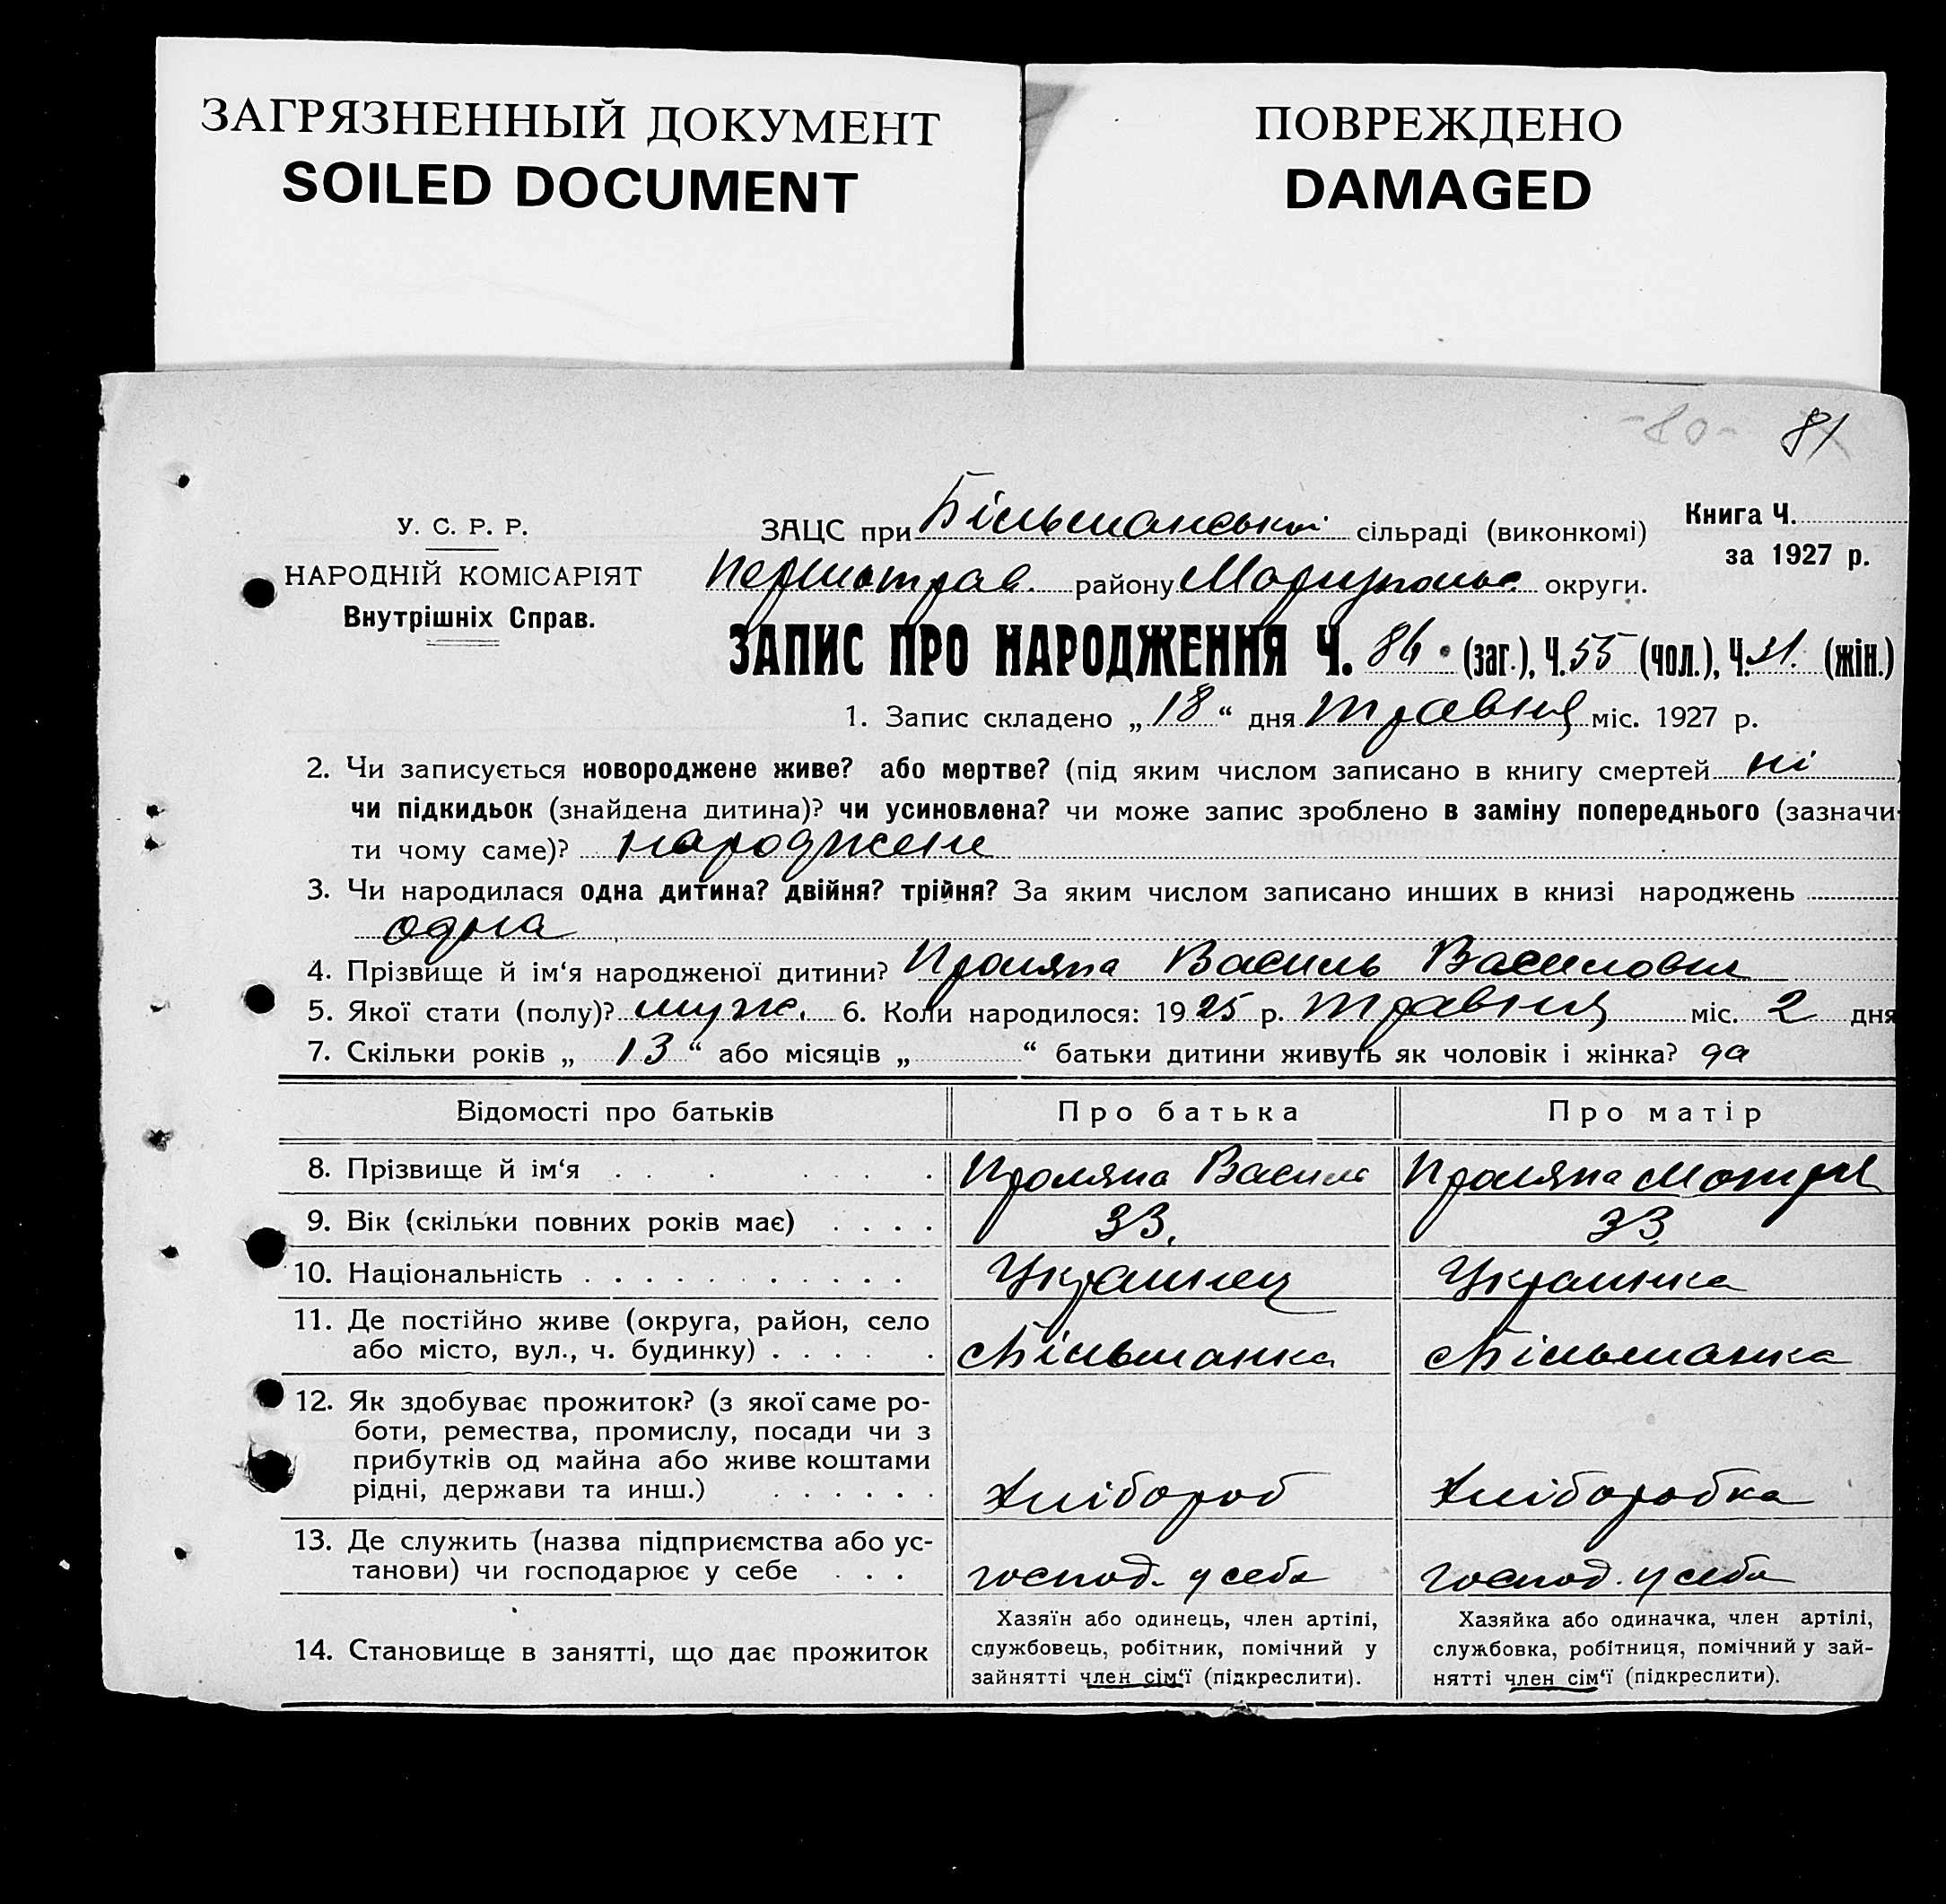 ЗАГРЯЗНЕННЫЙ ДОКУМЕНТ
SOILED DOCUMENT
ПОВРЕЖДЕНО
DAMAGED
-80- 81
У. С. Р. Р.
НАРОДНІЙ КОМІСАРІЯТ
Внутрішніх Справ.
ЗАЦС при Більманській сільраді (виконкомі)
Першотрав. району Маріупольс. округи.
Книга Ч.
за 1927 р.
ЗАПИС ПРО НАРОДЖЕННЯ Ч. 86 (заг.), Ч. 55 (чол.), Ч. 31. (жін.)
1. Запис складено „ 18 “ дня травня міс. 1927 р.
2. Чи записується новороджене живе? або мертве? (під яким числом записано в книгу смертей ні )
чи підкидьок (знайдена дитина)? чи усиновлена? чи може запис зроблено в заміну попереднього (зазначи-
ти чому саме)? народжене
3. Чи народилася одна дитина? двійня? трійня? За яким числом записано инших в книзі народжень
одна
4. Прізвище й ім‘я народженої дитини? Василь Василович
5. Якої стати (полу)? муж. 6. Коли народилося: 1925 р. травня міс. 2 дня
7. Скільки років „ 13 “ або місяців „ “ батьки дитини живуть як чоловік і жінка? да
Відомості про батьків Про батька Про матір
8. Прізвище й ім‘я Василь
9. Вік (скільки повних років має) 33. 33
10. Національність Украинец Украинка
11. Де постійно живе (округа, район, село
або місто, вул., ч. будинку) с Більманка с Більманка
12. Як здобуває прожиток? (з якої саме ро-
боти, ремества, промислу, посади чи з
прибутків од майна або живе коштами
рідні, держави та инш.) Хлібороб Хлібробка
13. Де служить (назва підприємства або ус-
танови) чи господарює у себе господ. у себе господ. у себе
14. Становище в занятті, що дає прожиток
Хазяїн або одинець, член артілі,
службовець, робітник, помічний у
зайнятті член сім‘ї (підкреслити).
Хазяйка або одиначка, член артілі,
службовка, робітниця, помічний у зай-
нятті член сім‘ї (підкреслити).